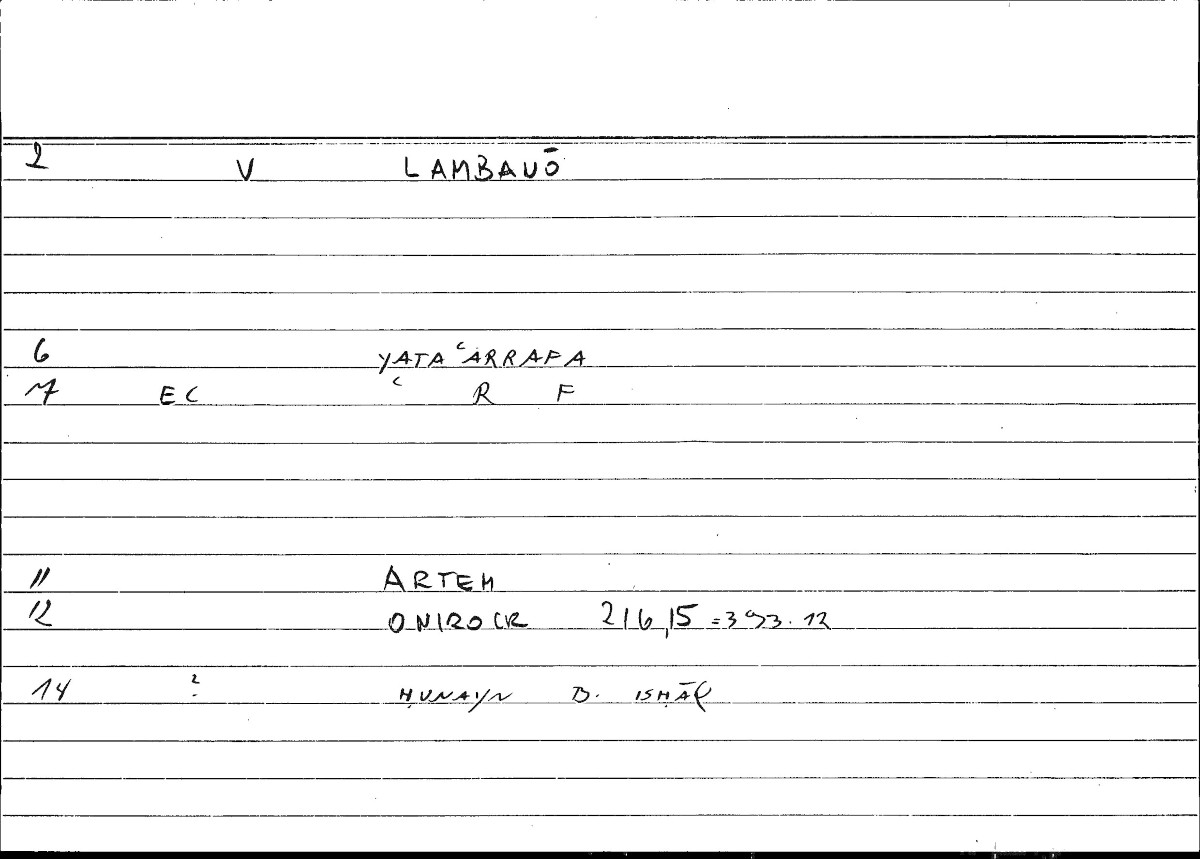 2 V LAMBANŌ
6 YATAʿARRAFA
7 EC ʿ R F
11 ARTEM
12 ONIROCR 216,15 = 393.12
14 2 ḤUNAYN B. ISḤĀQ